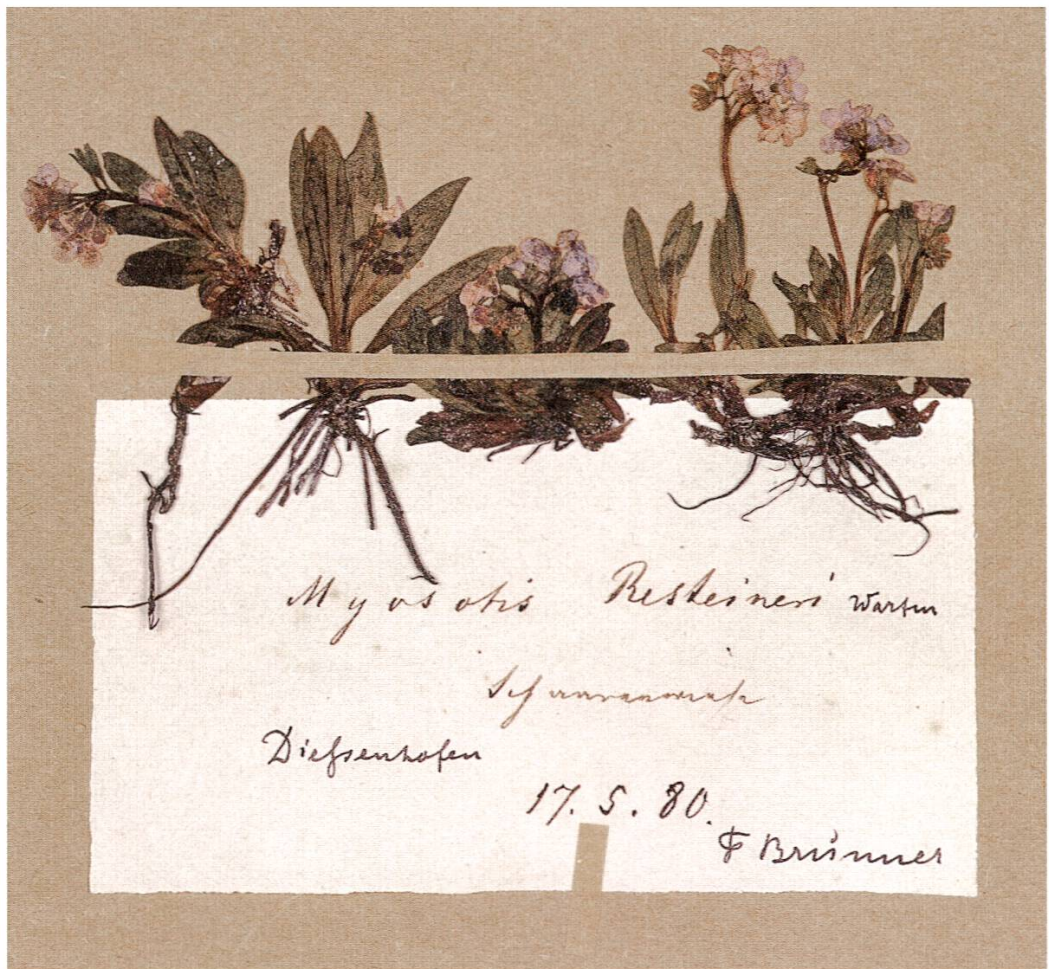 Myosotis Resteineri Wartm
Schaarenwiese
Diessenhofen
17. 5. 80.
F Brunner